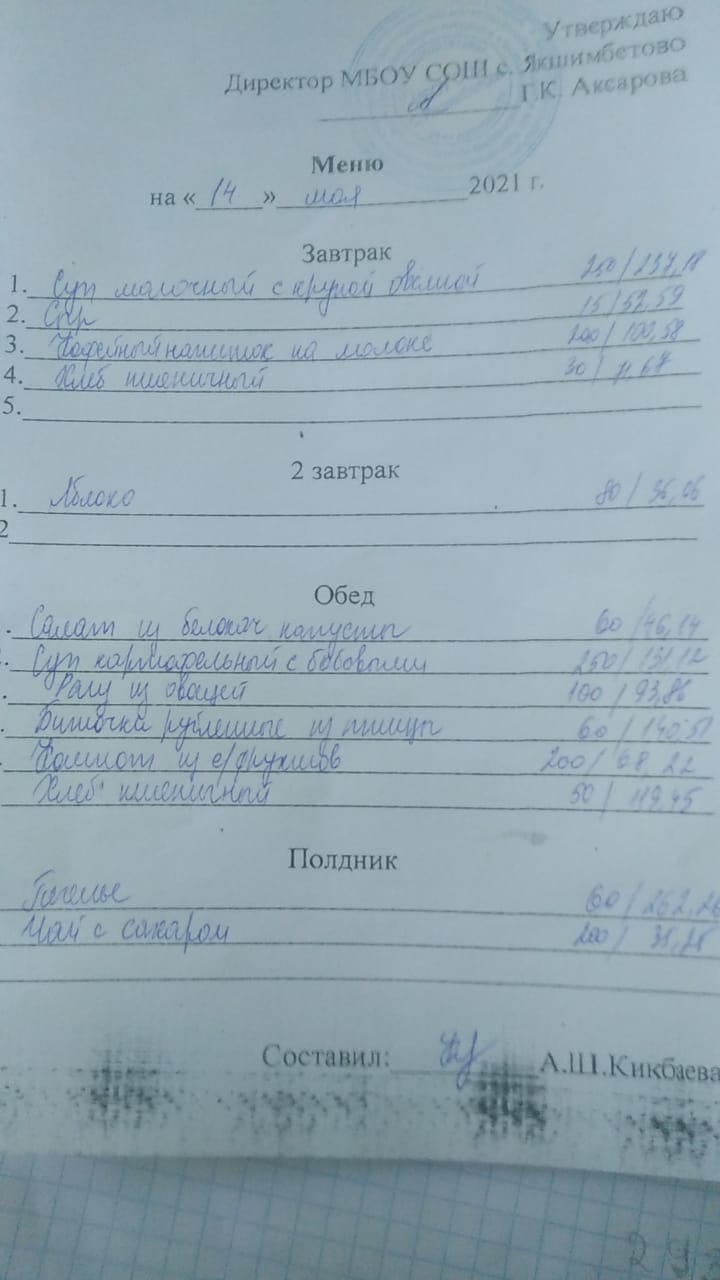 Утверждаю
Директор МБОУ СОШ с. Якшимбетово
Г.К. Аксарова
Меню
на « 14 » мая 2021 г.
Завтрак
1. Суп молочный с крупой овсяной 250/237,18
2. Сыр 15/52,59
3. Кофейный напиток на молоке 200/100,58
4. Хлеб пшеничный 30/71,67
5.
2 завтрак
1. Яблоко 80/36,06
2
Обед
Салат из белокоч капусты 60/46,14
Суп картофельный с бобовыми 250/131,12
Рагу из овощей 100/93,86
Биточки рубленные из птицы 60/140,51
Компот из с/фруктов 200/68,22
Хлеб пшеничный 50/119,45
Полдник
Печенье 60/262,26
Чай с сахаром 200/35,28
Составил: А.Ш.Кикбаева